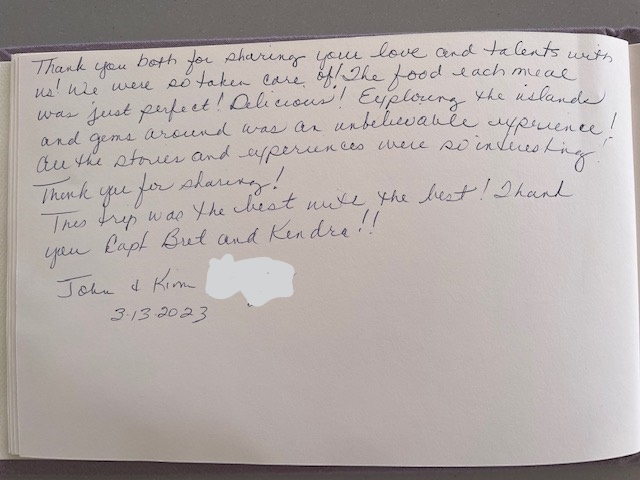 Thank you both for sharing your love and talents with
us! We were so taken care of! The food each meal
was just perfect! Delicious! Exploring the islands
and gems around was an unbelievable experience!
All the stories and experiences were so interesting!
Thank you for sharing!
This trip was the best with the best! Thank
you Capt Bret and Kendra!!
John & Kim
3-13-2023